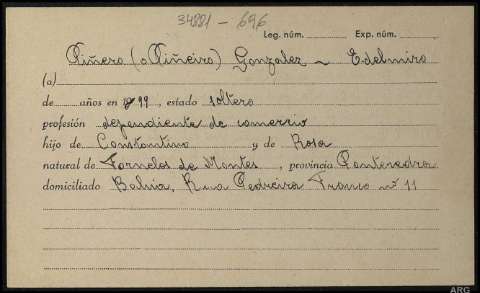 34881 - 696
Leg. núm. Exp. núm.
Piñero (o Piñeiro) Gonzalez ~ Edelmiro
(a)
de años en 99, estado soltero
profesión dependiente de comercio
hijo de Constantino y de Rosa
natural de Fornelos de Montes, provincia Pontevedra
domiciliado Bahia, Rua Pedreira Franco nº 11
ARG